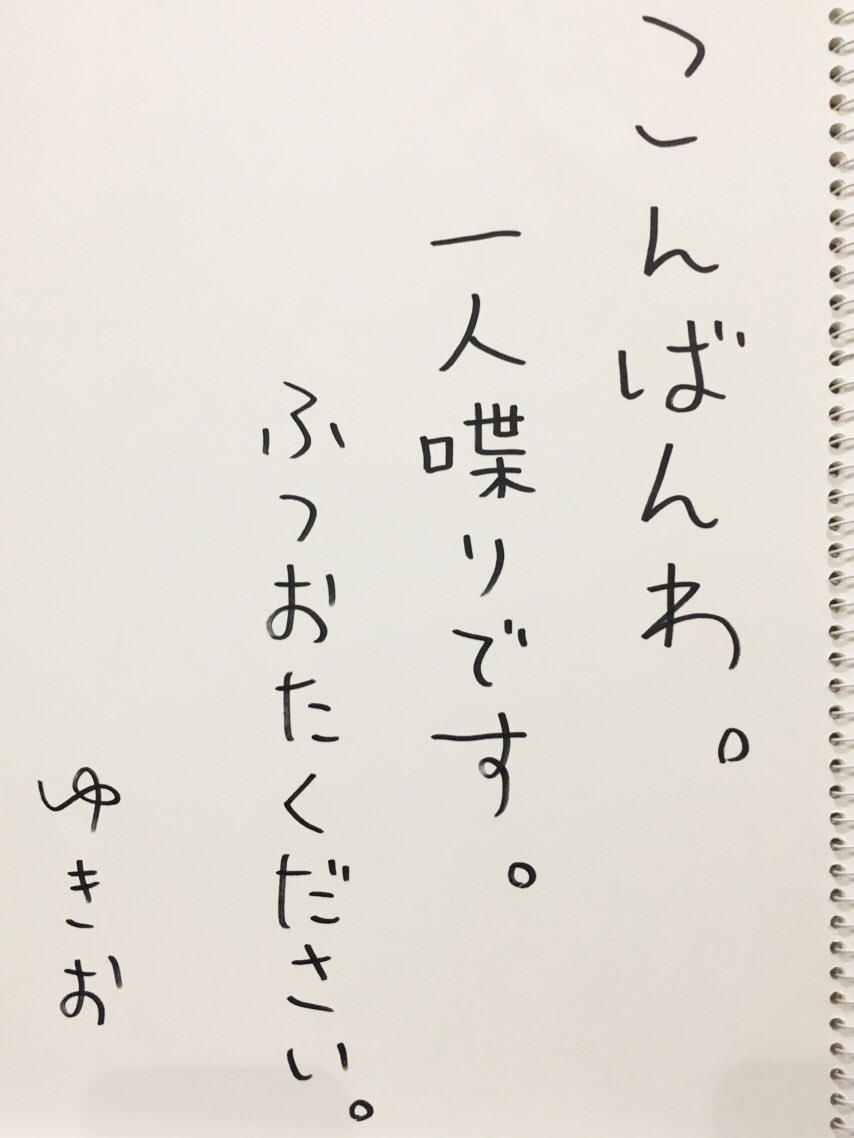 こんばんわ。
一人喋りです。
ふつおたください。
ゆきお